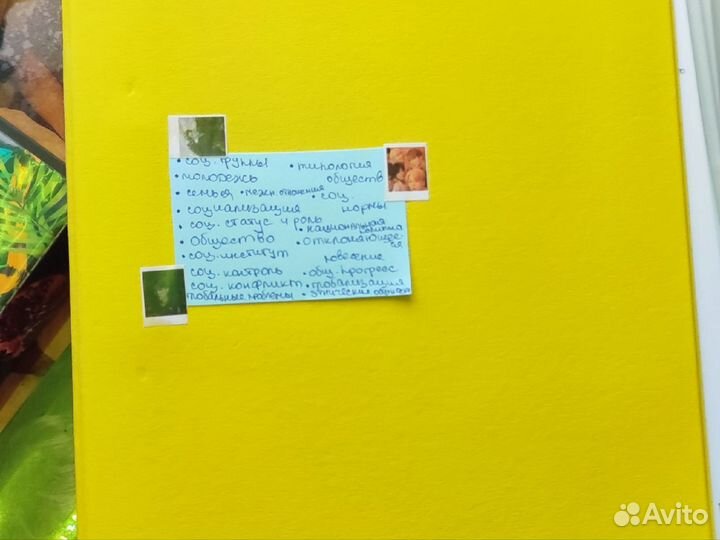 • соц. группы
• молодежь
• семья • межн. отношения
• социализация
• соц. статус и роль
• общество
• соц. институт
соц. контроль
соц. конфликт
глобальные проблемы
• типология
обществ
• соц.
нормы
• национальная
политика
• отклоняющее-
ся
поведение
• общ. прогресс
• глобализация
• этнические общности
Avito